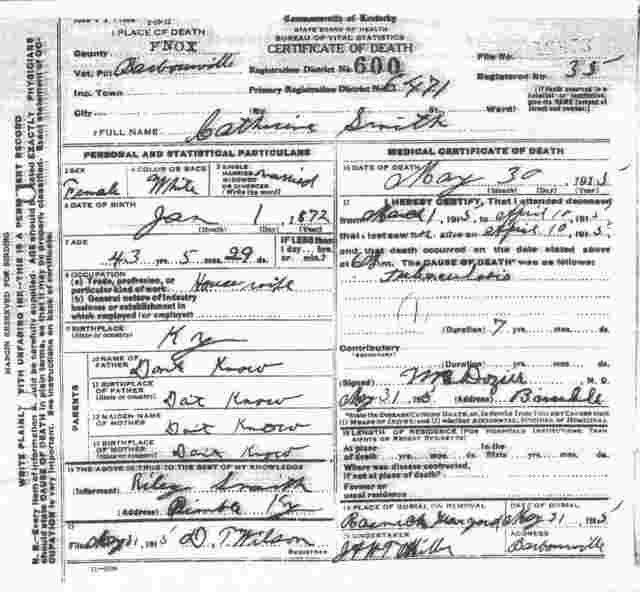 1 PLACE OF DEATH
Commonwealth of Kentucky
STATE BOARD OF HEALTH
BUREAU OF VITAL STATISTICS
CERTIFICATE OF DEATH
County KNOX
File No.
Vot. Pct Barbourville
Registration District No. 600
Registered No. 35
Inc. Town
Primary Registration District No. 5471
City (No. St. Ward)
(If death occurred in a hospital or institution, give its NAME instead of street and number.)
2 FULL NAME Catherine Smith
PERSONAL AND STATISTICAL PARTICULARS
3 SEX Female
4 COLOR OR RACE White
5 SINGLE MARRIED WIDOWED OR DIVORCED (Write the word) married
6 DATE OF BIRTH Jan 1 1872
(Month) (Day) (Year)
7 AGE 43 yrs. 5 mos. 29 ds.
IF LESS than 1 day... hrs. or... min.?
8 OCCUPATION
(a) Trade, profession, or particular kind of work House wife
(b) General nature of industry business or establishment in which employed (or employer)
9 BIRTHPLACE (State or country) Ky
PARENTS
10 NAME OF FATHER Dont Know
11 BIRTHPLACE OF FATHER (State or country) Dait Know
12 MAIDEN NAME OF MOTHER Dait Know
13 BIRTHPLACE OF MOTHER (State or country) Dait Know
14 THE ABOVE IS TRUE TO THE BEST OF MY KNOWLEDGE
(Informant) Riley Smith
(Address) Bimble Ky
15
Filed May 31 1915 D. T. Wilson
REGISTRAR
MEDICAL CERTIFICATE OF DEATH
16 DATE OF DEATH May 30 1915
(Month) (Day) (Year)
17 I HEREBY CERTIFY, That I attended deceased
from 1 1915 to April 10 1915
that I last saw alive on April 10 1915
and that death occurred on the date stated above
at 6 m. The CAUSE OF DEATH was as follows:
Tuberculosis
(Duration) 7 yrs. mos. ds.
Contributory
(SECONDARY)
(Duration) yrs. mos. ds.
(Signed) Dozier M. D.
May 31 1915 (Address) Bimble
*State the DISEASE CAUSING DEATH, or, in deaths from VIOLENT CAUSES state (1) MEANS OF INJURY; and (2) whether ACCIDENTAL, SUICIDAL or HOMICIDAL.
18 LENGTH OF RESIDENCE (FOR HOSPITALS, INSTITUTIONS, TRANSIENTS OR RECENT RESIDENTS)
At place of death yrs. mos. ds. In the State yrs. mos. ds.
Where was disease contracted, if not at place of death?
Former or usual residence
19 PLACE OF BURIAL OR REMOVAL
DATE OF BURIAL May 31 1915
20 UNDERTAKER Miller
ADDRESS Barbourville
MARGIN RESERVED FOR BINDING
WRITE PLAINLY WITH UNFADING INK—THIS IS A PERMANENT RECORD
N. B.—Every item of information should be carefully supplied. AGE should be stated EXACTLY. PHYSICIANS
should state CAUSE OF DEATH in plain terms, so that it may be properly classified. Exact statement of OC-
CUPATION is very important. See instructions on back of certificate.